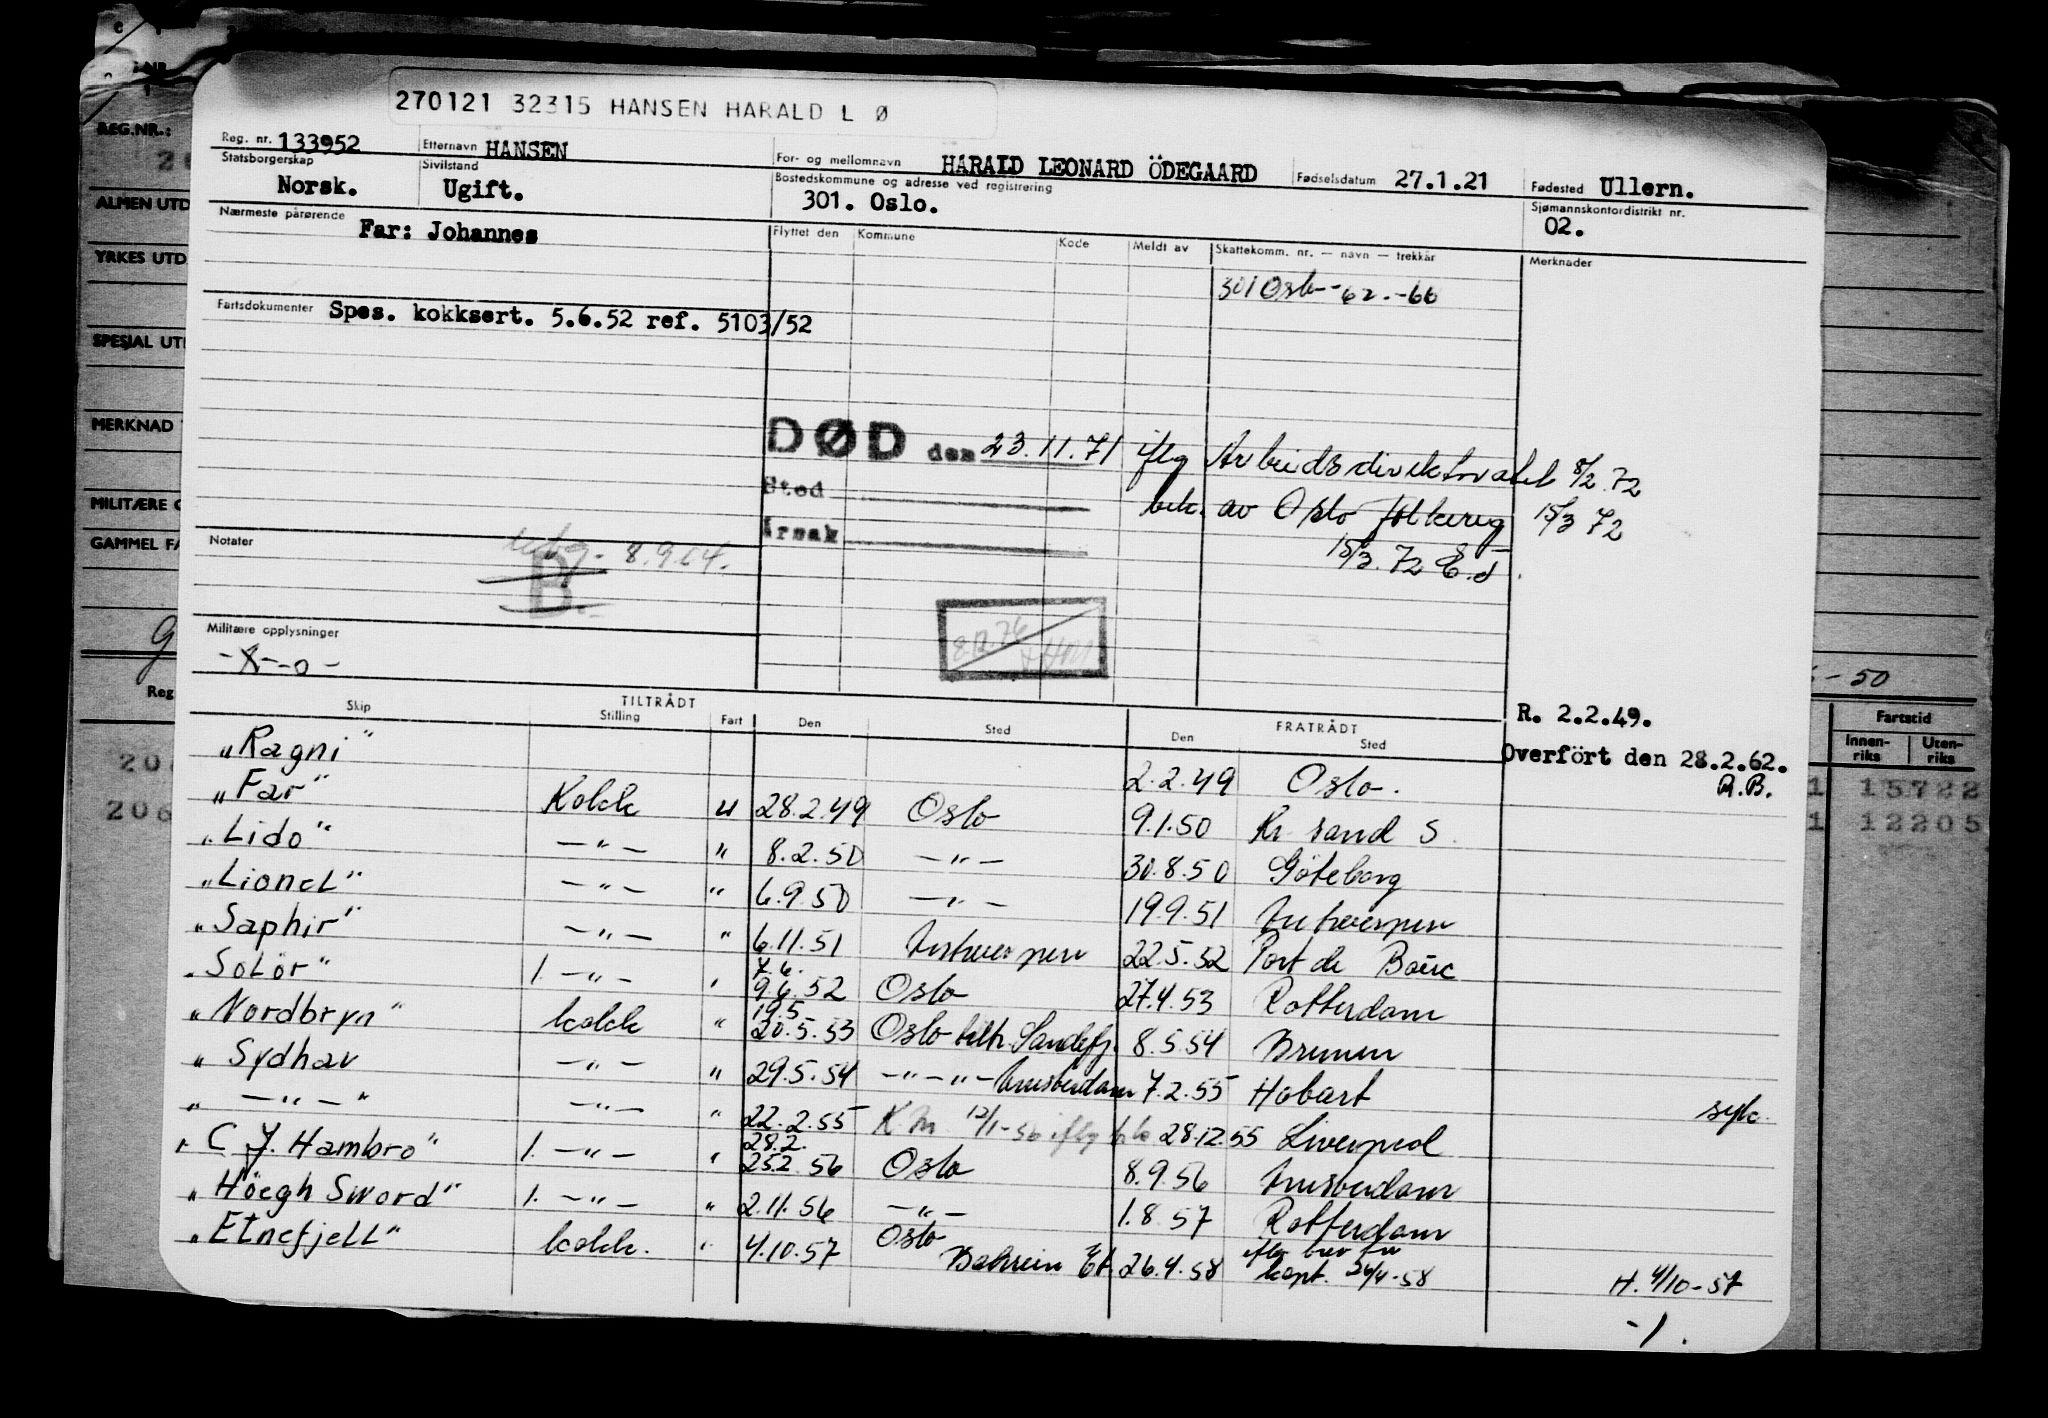 270121 32315 HANSEN HARALD L Ø
Reg. nr. 133952 Etternavn HANSEN For- og mellomnavn HARALD LEONARD ÖDEGAARD Fødselsdatum 27.1.21 Fødested Ullern.
Statsborgerskap Norsk. Sivilstand Ugift. Bostedskommune og adresse ved registrering 301. Oslo. Sjømannskontordistrikt nr. 02.
Nærmeste pårørende Far: Johannes
Flyttet den Kommune Kode Meldt av Skattekomm. nr. — navn — trekkår Merknader
301 Oslo - 62. - 66
Fartsdokumenter Spes. kokksert. 5.6.52 ref. 5103/52
DØD den 23.11.71 iflg Arbeidsdirektoratet 8/2.72
Sted bek. av Oslo folkereg 15/3 72
Årsak 15/3.72
Notater 8.9.64.
B.
Militære opplysninger
R. 2.2.49.
Overfört den 28.2.62.
R.B.
TILTRÅDT FRATRÅDT
Skip Stilling Fart Den Sted Den Sted
"Ragni" 2.2.49 Oslo.
"Far" Kokk u 28.2.49 Oslo 9.1.50 Kr sand S.
"Lido" — " — " 8.2.50 — " — 30.8.50 Göteborg
"Lionel" — " — " 6.9.50 — " — 19.9.51 Antwerpen
"Saphir" — " — " 6.11.51 Antwerpen 22.5.52 Port de Bouc
7.6.
"Solör" 1. — " — " 9.6.52 Oslo 27.4.53 Rotterdam
19.5
"Nordbryn" kokk " 20.5.53 Oslo tiltr. Sandefj. 8.5.54 Bremen
"Sydhav — " — " 29.5.54 — " — " — Amsterdam 7.2.55 Hobart syk.
" — " — " — " — " 22.2.55 12/1-56 iflg 28.12.55 Liverpool
28.2.
"C J. Hambro" 1. — " — " 25.2.56 Oslo 8.9.56 Amsterdam
"Höegh Sword" 1. — " — " 2.11.56 — " — 1.8.57 Rotterdam
"Etnefjell" kokk. " 4.10.57 Oslo Bahrein 26.4.58 iflg brev fra kapt. 26/4-58 H. 4/10-57
-1.
REG.NR.:
ALMEN UTD
YRKES UTD
SPESIAL UT
MERKNAD
MILITÆRE
GAMMEL FA
Reg
- 50
Fartstid
Innen-riks Uten-riks
1 15722
1 12205